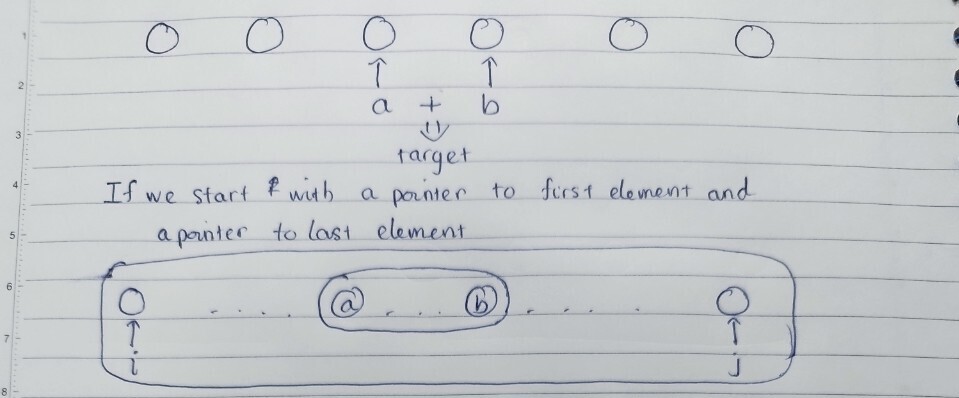 1
2
a + b
3
target
4
If we start with a pointer to first element and
5
a pointer to last element
6
a .... b
7
i j
8